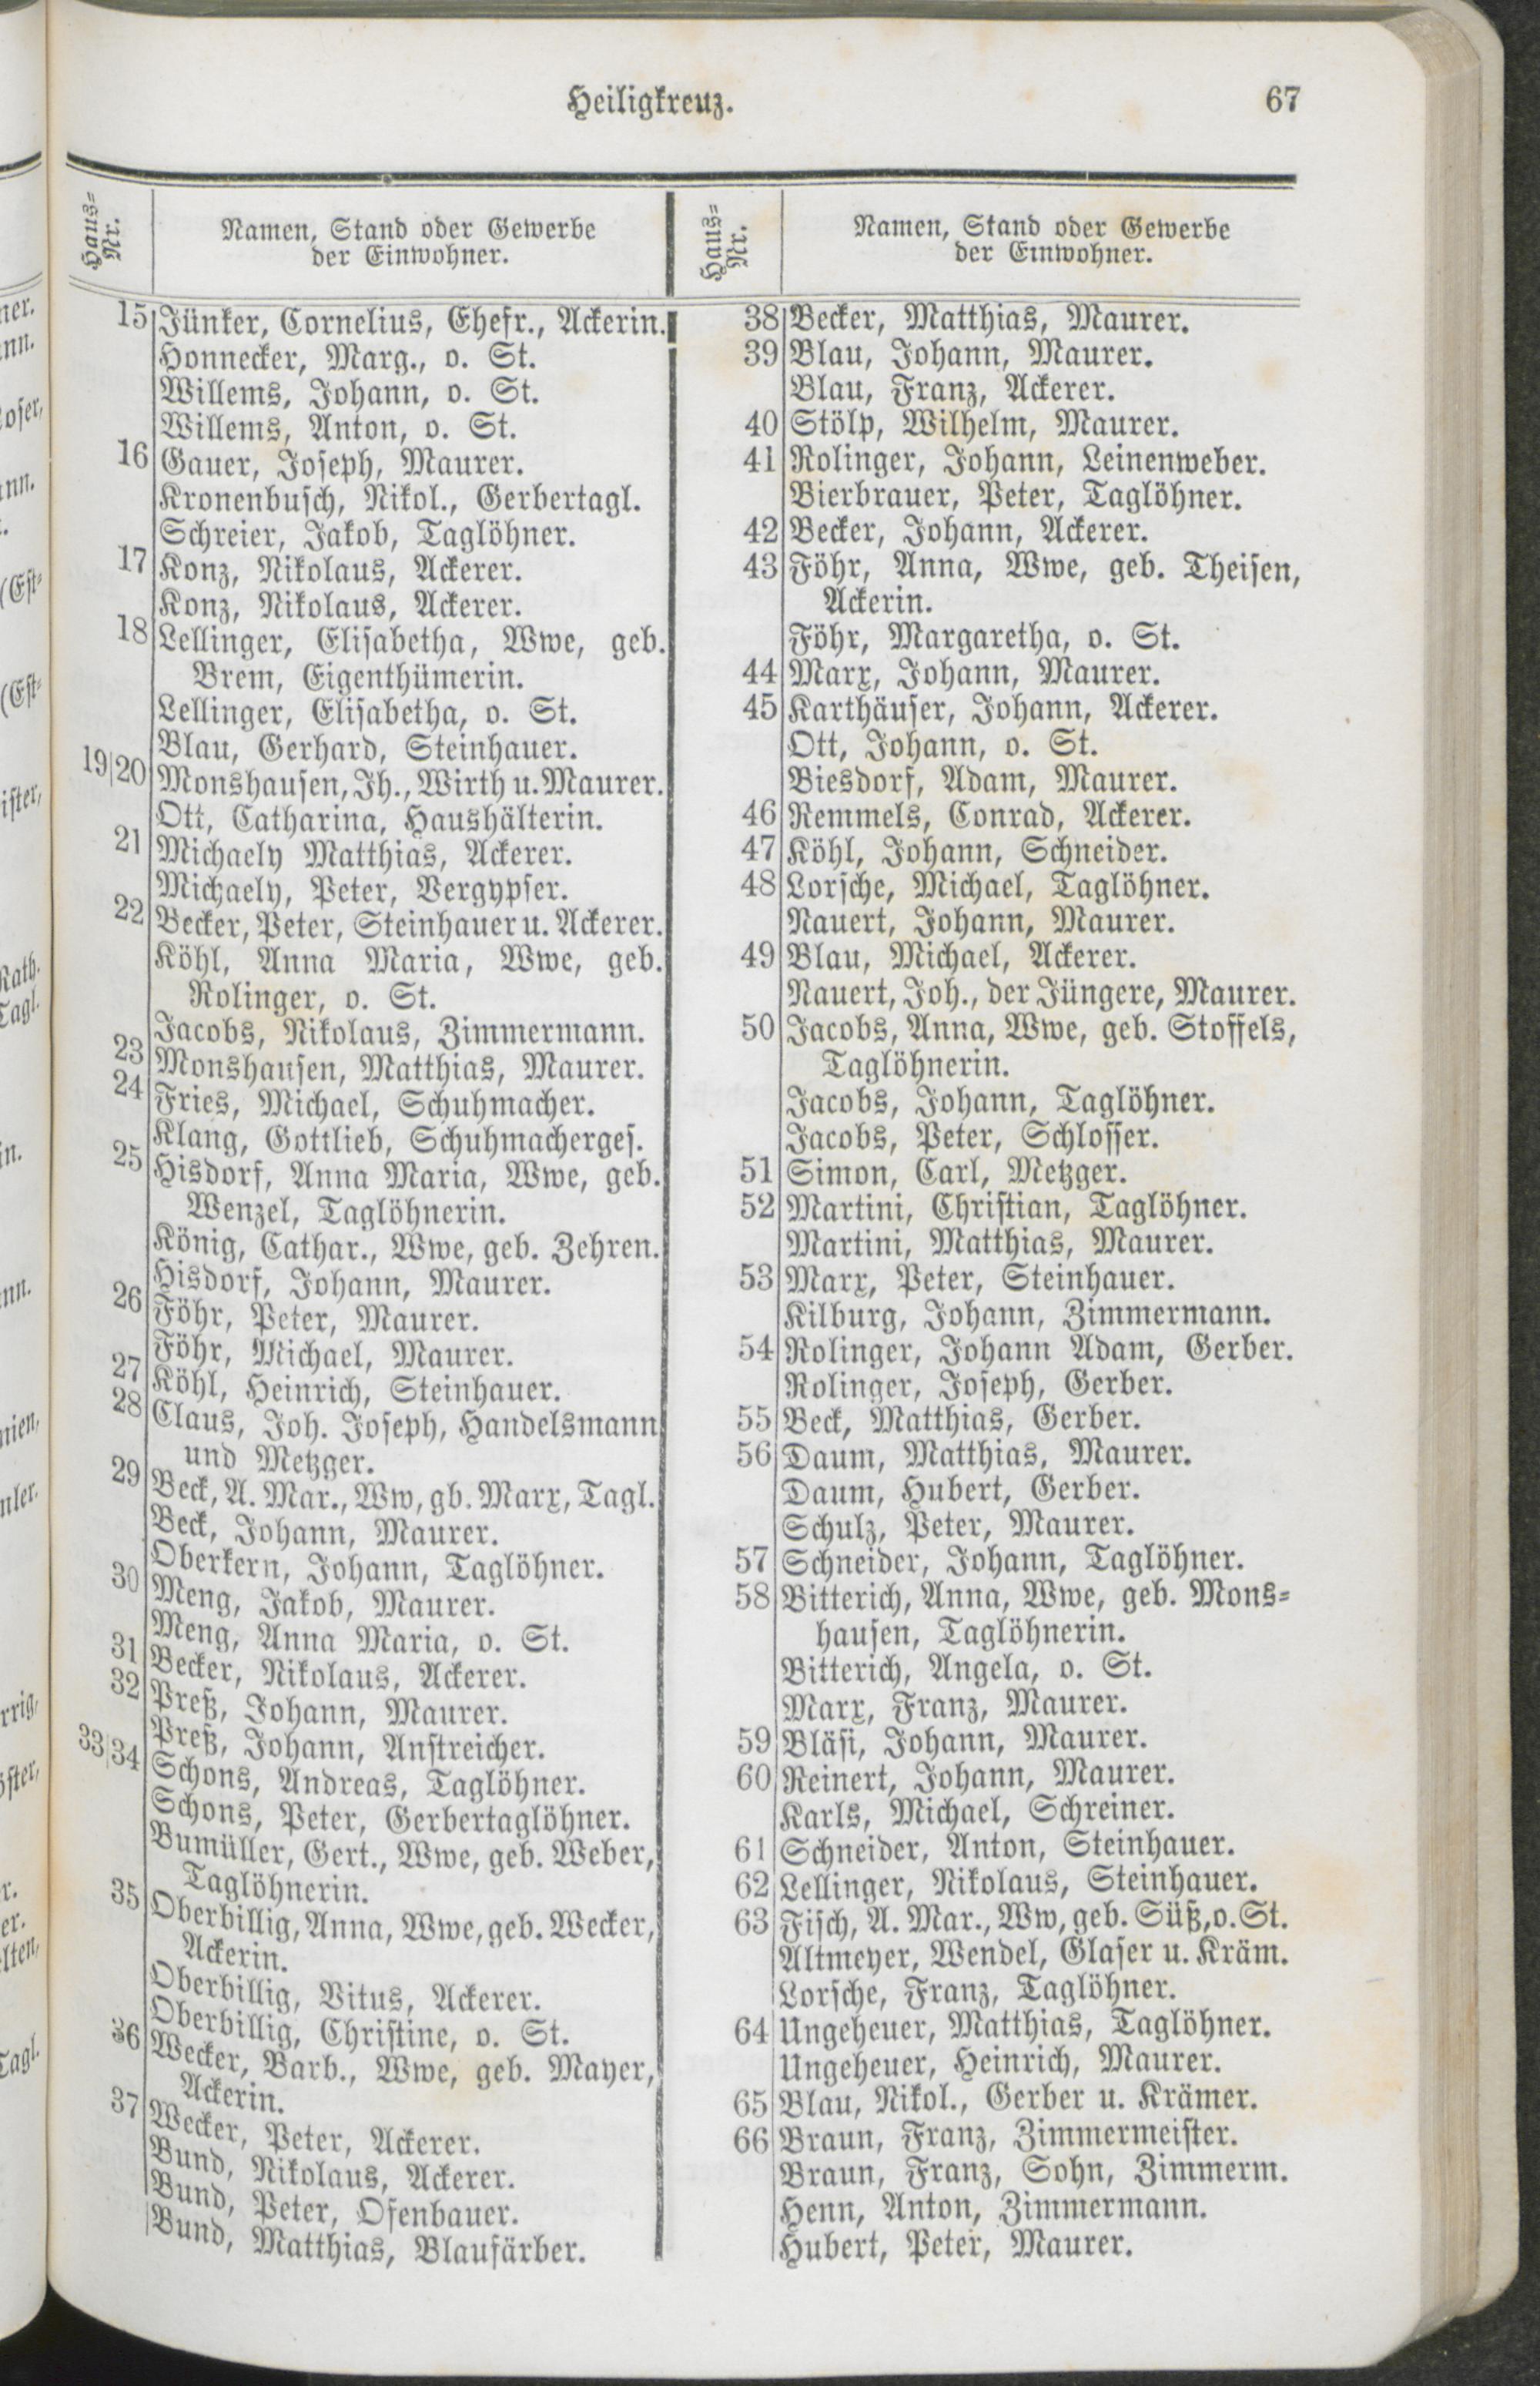 Heiligkreuz.
67
Haus-
Nr.
Namen, Stand oder Gewerbe
der Einwohner.
15 Jünker, Cornelius, Ehefr., Ackerin.
Honnecker, Marg., o. St.
Willems, Johann, o. St.
Willems, Anton, o. St.
16 Gauer, Joseph, Maurer.
Kronenbusch, Nikol., Gerbertagl.
Schreier, Jakob, Taglöhner.
17 Konz, Nikolaus, Ackerer.
Konz, Nikolaus, Ackerer.
18 Lellinger, Elisabetha, Wwe, geb.
Brem, Eigenthümerin.
Lellinger, Elisabetha, o. St.
Blau, Gerhard, Steinhauer.
19/20 Monshausen, Jh., Wirth u. Maurer.
Ott, Catharina, Haushälterin.
21 Michaely Matthias, Ackerer.
Michaely, Peter, Vergypser.
22 Becker, Peter, Steinhauer u. Ackerer.
Köhl, Anna Maria, Wwe, geb.
Rolinger, o. St.
Jacobs, Nikolaus, Zimmermann.
23 Monshausen, Matthias, Maurer.
24 Fries, Michael, Schuhmacher.
Klang, Gottlieb, Schuhmacherges.
25 Hisdorf, Anna Maria, Wwe, geb.
Wenzel, Taglöhnerin.
König, Cathar., Wwe, geb. Zehren.
Hisdorf, Johann, Maurer.
26 Föhr, Peter, Maurer.
Föhr, Michael, Maurer.
27 Köhl, Heinrich, Steinhauer.
28 Claus, Joh. Joseph, Handelsmann
und Metzger.
29 Beck, A. Mar., Ww, gb. Marx, Tagl.
Beck, Johann, Maurer.
Oberkern, Johann, Taglöhner.
30 Meng, Jakob, Maurer.
Meng, Anna Maria, o. St.
31 Becker, Nikolaus, Ackerer.
32 Preß, Johann, Maurer.
Preß, Johann, Anstreicher.
33/34 Schons, Andreas, Taglöhner.
Schons, Peter, Gerbertaglöhner.
Bumüller, Gert., Wwe, geb. Weber,
Taglöhnerin.
35 Oberbillig, Anna, Wwe, geb. Wecker,
Ackerin.
Oberbillig, Vitus, Ackerer.
Oberbillig, Christine, o. St.
36 Wecker, Barb., Wwe, geb. Mayer,
Ackerin.
37 Wecker, Peter, Ackerer.
Bund, Nikolaus, Ackerer.
Bund, Peter, Ofenbauer.
Bund, Matthias, Blaufärber.
Haus-
Nr.
Namen, Stand oder Gewerbe
der Einwohner.
38 Becker, Matthias, Maurer.
39 Blau, Johann, Maurer.
Blau, Franz, Ackerer.
40 Stölp, Wilhelm, Maurer.
41 Rolinger, Johann, Leinenweber.
Bierbrauer, Peter, Taglöhner.
42 Becker, Johann, Ackerer.
43 Föhr, Anna, Wwe, geb. Theisen,
Ackerin.
Föhr, Margaretha, o. St.
44 Marx, Johann, Maurer.
45 Karthäuser, Johann, Ackerer.
Ott, Johann, o. St.
Biesdorf, Adam, Maurer.
46 Remmels, Conrad, Ackerer.
47 Köhl, Johann, Schneider.
48 Lorsche, Michael, Taglöhner.
Nauert, Johann, Maurer.
49 Blau, Michael, Ackerer.
Nauert, Joh., der Jüngere, Maurer.
50 Jacobs, Anna, Wwe, geb. Stoffels,
Taglöhnerin.
Jacobs, Johann, Taglöhner.
Jacobs, Peter, Schlosser.
51 Simon, Carl, Metzger.
52 Martini, Christian, Taglöhner.
Martini, Matthias, Maurer.
53 Marx, Peter, Steinhauer.
Kilburg, Johann, Zimmermann.
54 Rolinger, Johann Adam, Gerber.
Rolinger, Joseph, Gerber.
55 Beck, Matthias, Gerber.
56 Daum, Matthias, Maurer.
Daum, Hubert, Gerber.
Schulz, Peter, Maurer.
57 Schneider, Johann, Taglöhner.
58 Bitterich, Anna, Wwe, geb. Mons-
hausen, Taglöhnerin.
Bitterich, Angela, o. St.
Marx, Franz, Maurer.
59 Bläsi, Johann, Maurer.
60 Reinert, Johann, Maurer.
Karls, Michael, Schreiner.
61 Schneider, Anton, Steinhauer.
62 Lellinger, Nikolaus, Steinhauer.
63 Fisch, A. Mar., Ww, geb. Süß, o. St.
Altmeyer, Wendel, Glaser u. Kräm.
Lorsche, Franz, Taglöhner.
64 Ungeheuer, Matthias, Taglöhner.
Ungeheuer, Heinrich, Maurer.
65 Blau, Nikol., Gerber u. Krämer.
66 Braun, Franz, Zimmermeister.
Braun, Franz, Sohn, Zimmerm.
Henn, Anton, Zimmermann.
Hubert, Peter, Maurer.